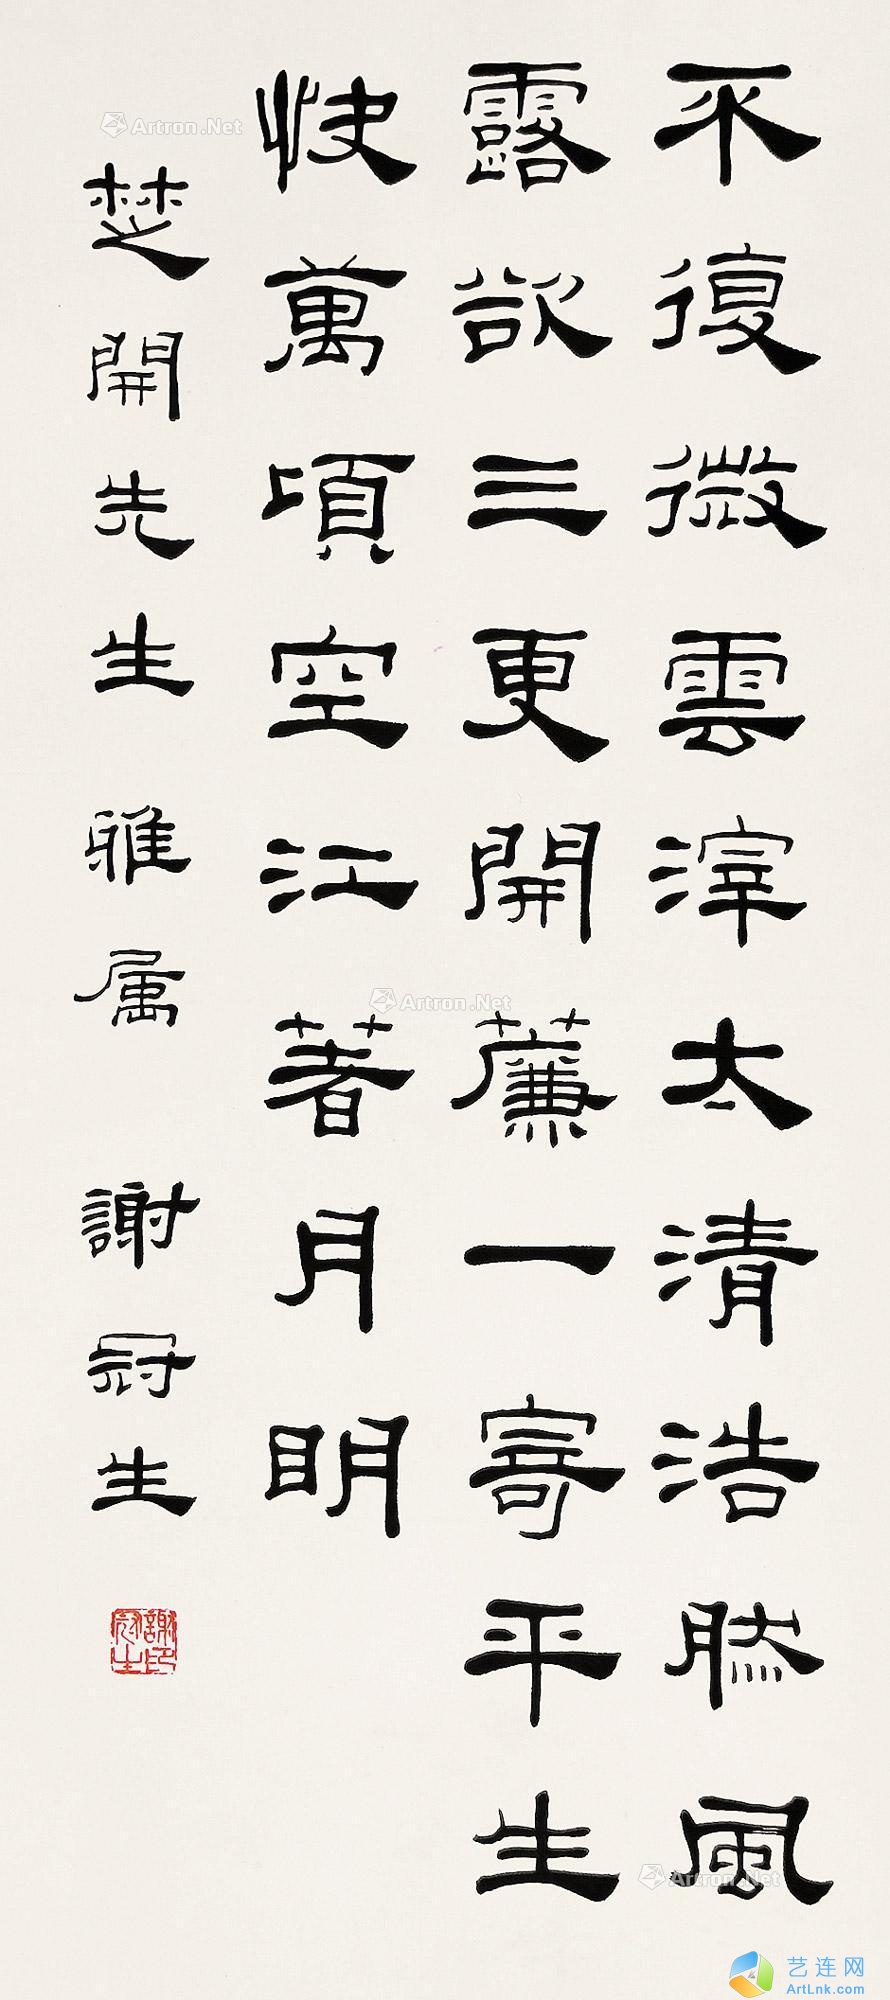 不復微雲滓太清浩然風
露欲三更開薕一寄平生
快萬頃空江著月明
楚開先生雅属謝冠生
謝冠生印
Artron.Net
Artron.Net
Artron.Net
艺连网
ArtLnk.com